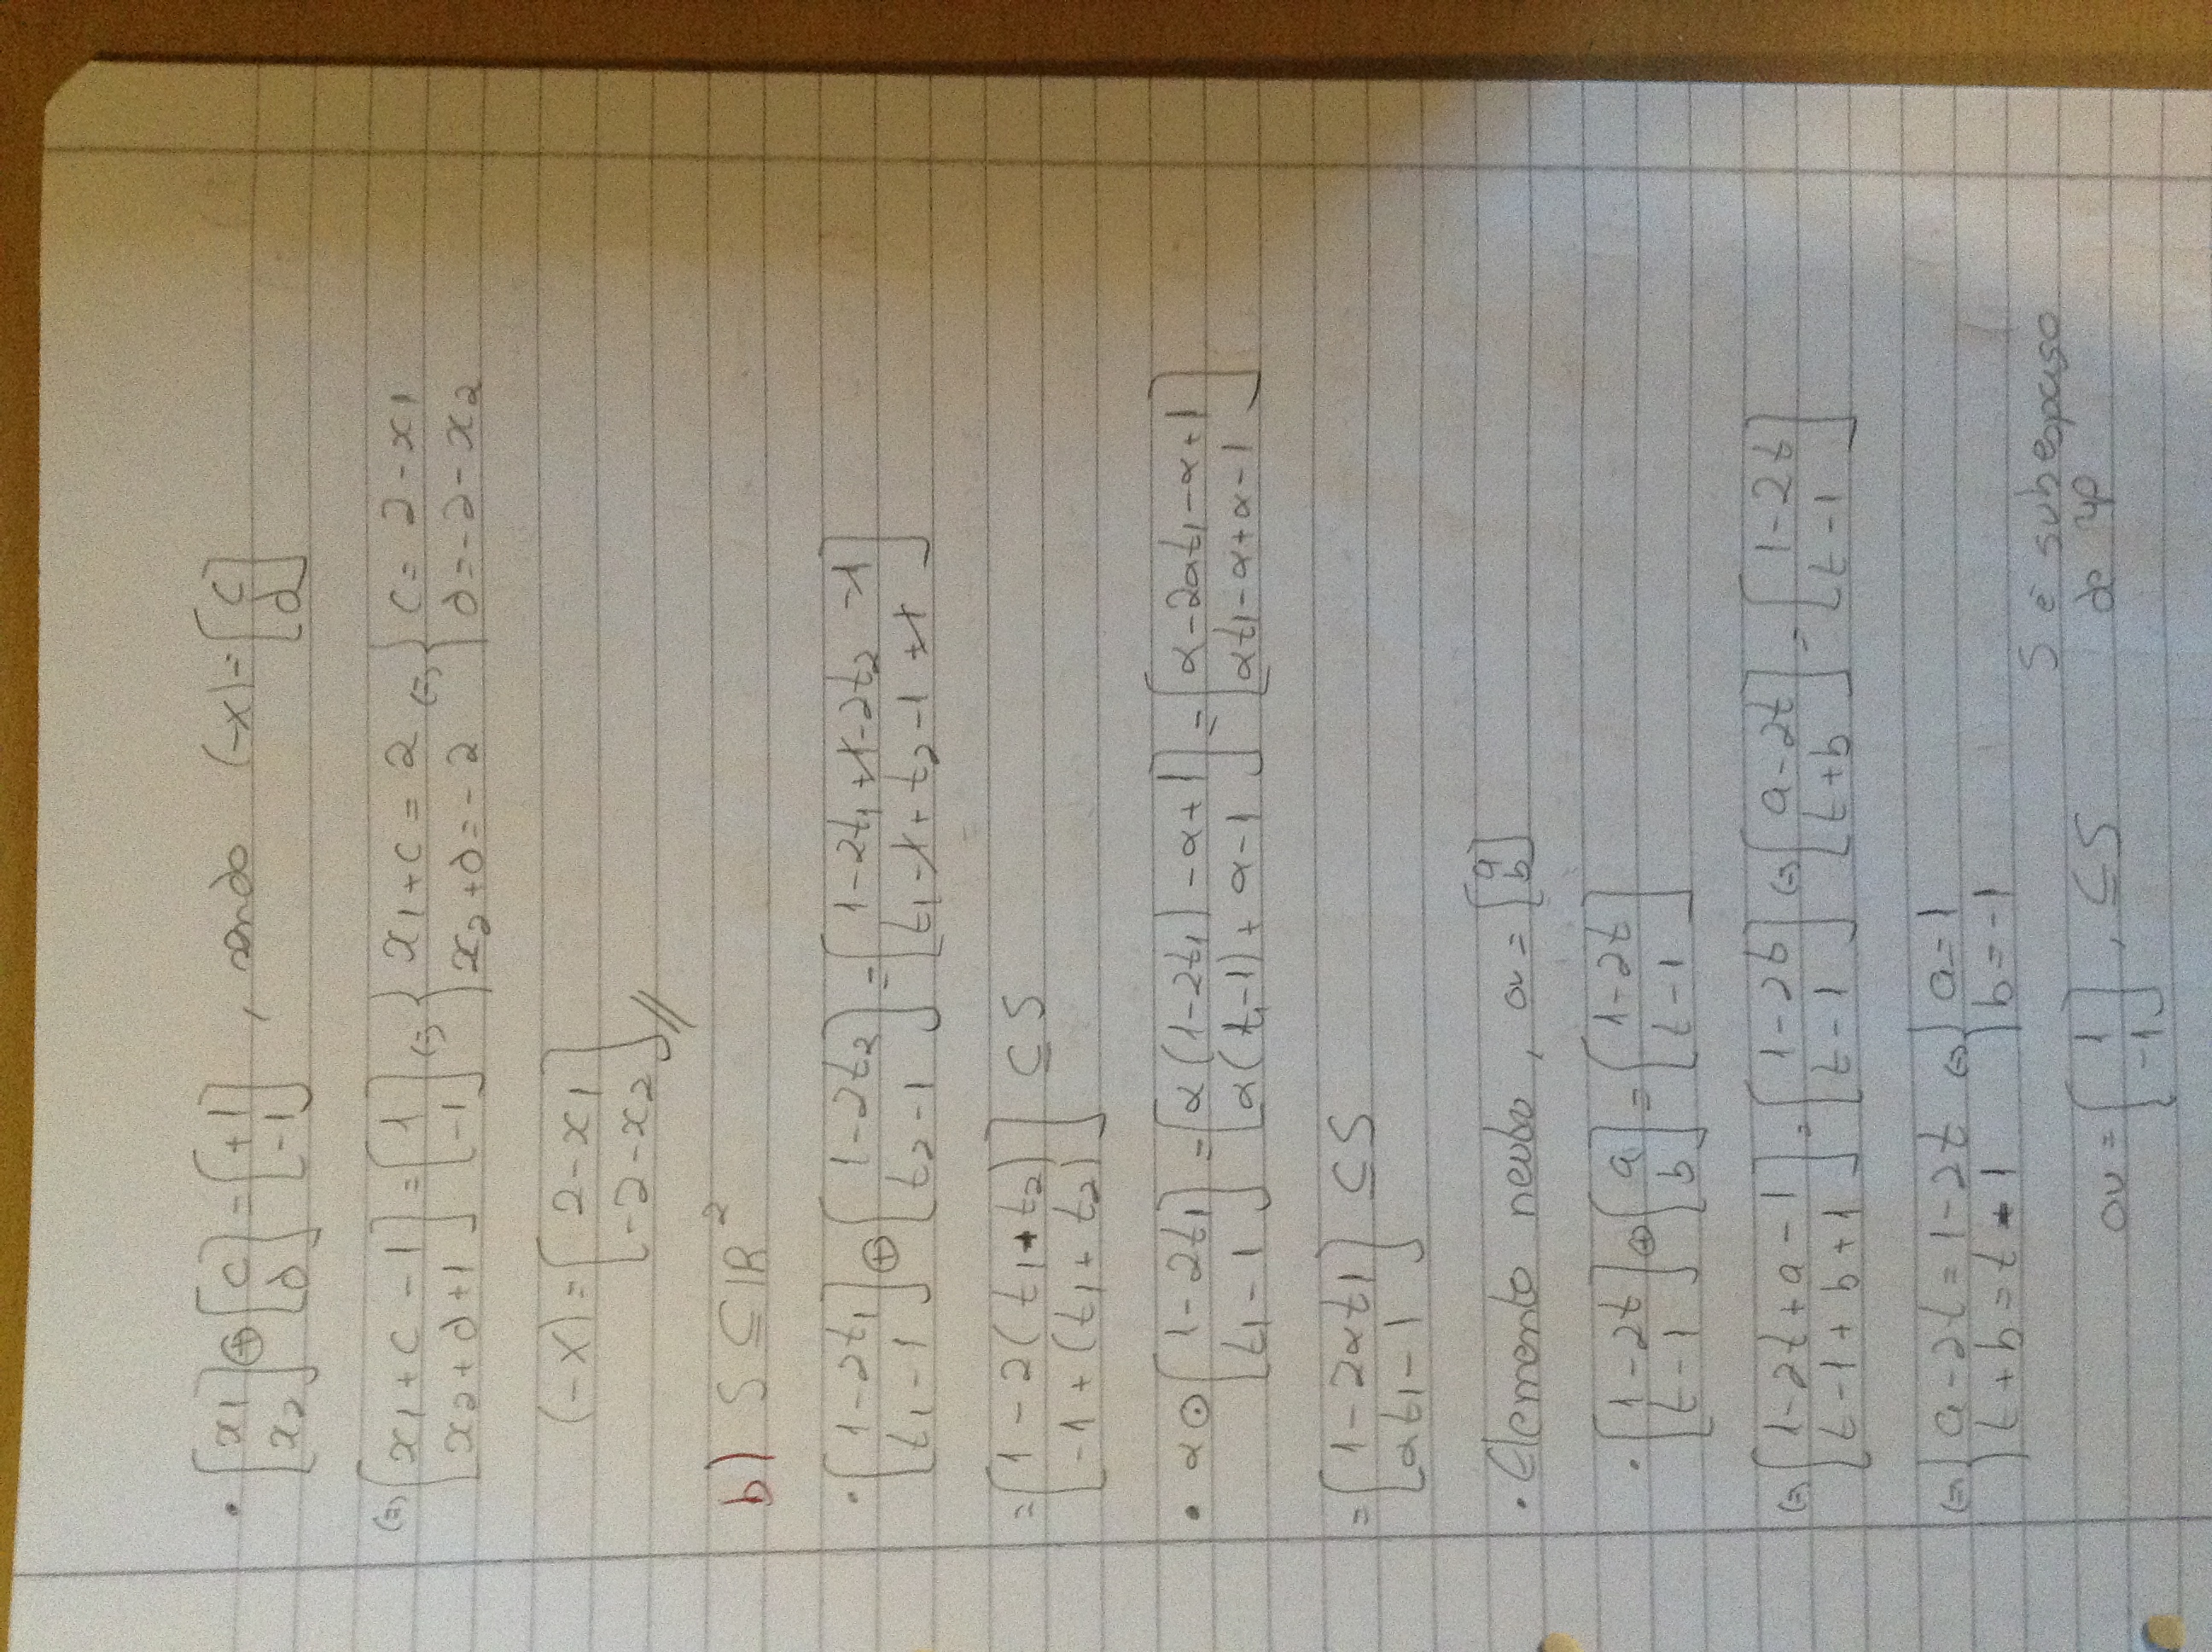 • [x1 x2] ⊕ [c d] = [+1 -1] , sendo (-x) = [c d]
(=) [x1 + c - 1 x2 + d + 1] = [1 -1] (=) { x1 + c = 2 x2 + d = -2 (=) { c = 2 - x1 d = -2 - x2
(-x) = [2 - x1 -2 - x2] //
b) S ⊆ IR²
• [1 - 2t1 t1 - 1] ⊕ [1 - 2t2 t2 - 1] = [1 - 2t1 + 1 - 2t2 - 1 t1 - 1 + t2 - 1 + 1]
= [1 - 2(t1 + t2) -1 + (t1 + t2)] ⊆ S
• α ⊙ [1 - 2t1 t1 - 1] = [α(1 - 2t1) - α + 1 α(t1 - 1) + α - 1] = [α - 2αt1 - α + 1 αt1 - α + α - 1]
= [1 - 2αt1 αt1 - 1] ⊆ S
• Elemento neutro, ov = [a b]
• [1 - 2t t - 1] ⊕ [a b] = [1 - 2t t - 1]
(=) [1 - 2t + a - 1 t - 1 + b + 1] = [1 - 2t t - 1] (=) [a - 2t t + b] = [1 - 2t t - 1]
(=) { a - 2t = 1 - 2t t + b = t - 1 (=) { a = 1 b = -1
ov = [1 -1] , ⊆ S
S é subespaço
de